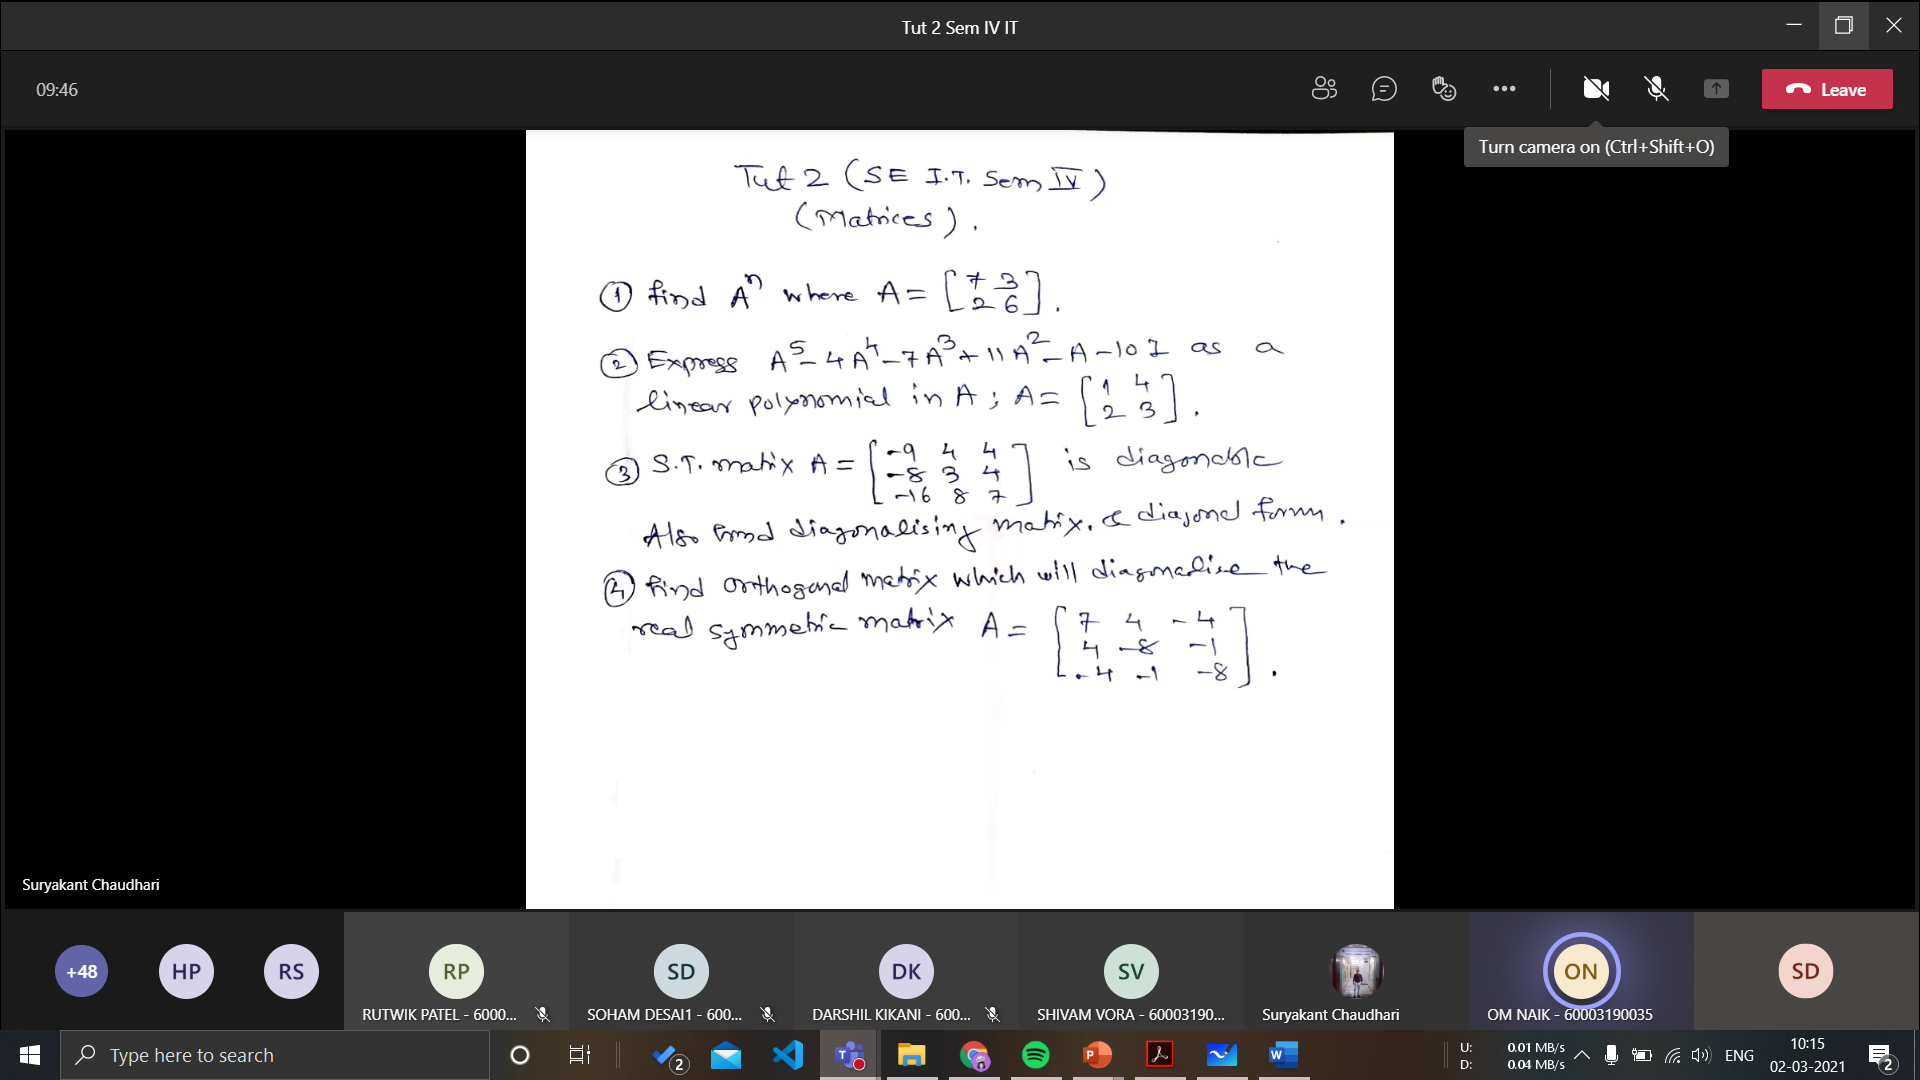 Tut 2 Sem IV IT
09:46
Leave
Turn camera on (Ctrl+Shift+O)
Tut 2 (SE I.T. Sem IV)
(Matrices).
① find Aⁿ where A = [7 3
2 6].
② Express A⁵-4A⁴-7A³+11A²-A-10I as a
linear polynomial in A; A = [1 4
2 3].
③ S.T. matrix A = [-9 4 4
-8 3 4
-16 8 7] is diagonable
Also find diagonalising matrix. & diagonal form.
④ find orthogonal matrix which will diagonalise the
real symmetric matrix A = [7 4 -4
4 -8 -1
-4 -1 -8].
Suryakant Chaudhari
+48
HP
RS
RP
SD
DK
SV
ON
SD
RUTWIK PATEL - 6000...
SOHAM DESAI1 - 600...
DARSHIL KIKANI - 600...
SHIVAM VORA - 60003190...
Suryakant Chaudhari
OM NAIK - 60003190035
Type here to search
2
U: 0.01 MB/s
D: 0.04 MB/s
ENG
10:15
02-03-2021
2